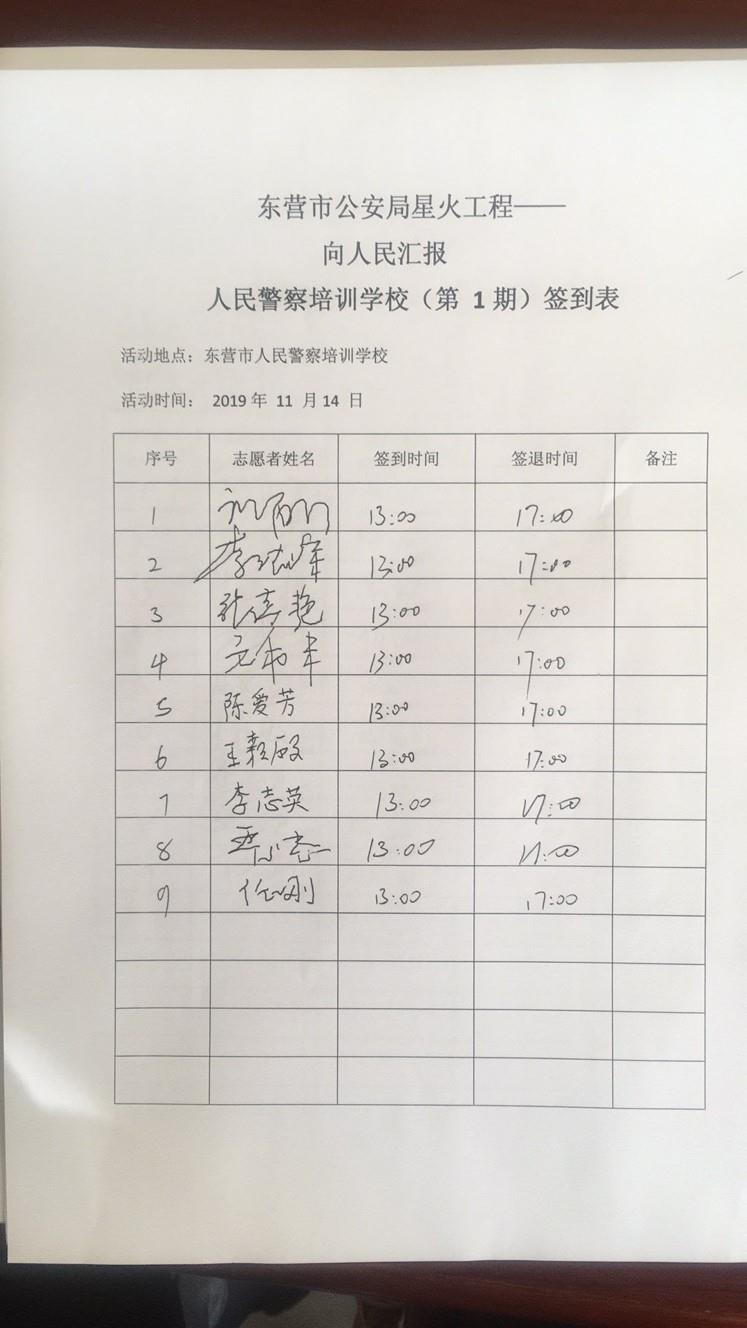 东营市公安局星火工程——
向人民汇报
人民警察培训学校（第 1 期）签到表
活动地点：东营市人民警察培训学校
活动时间： 2019 年 11 月 14 日
序号 志愿者姓名 签到时间 签退时间 备注
1 13:00 17:00
2 李 13:00 17:00
3 张 艳 13:00 17:00
4 13:00 17:00
5 陈爱芳 13:00 17:00
6 王 13:00 17:00
7 李志英 13:00 17:00
8 13:00 17:00
9 任刚 13:00 17:00